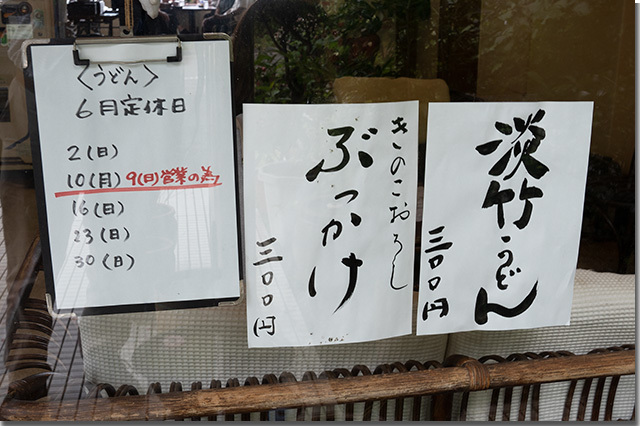 〈うどん〉
6月定休日
2(日)
10(月) 9(日)営業の為
16(日)
23(日)
30(日)
きのこおろし
ぶっかけ
三〇〇円
淡竹うどん
三〇〇円